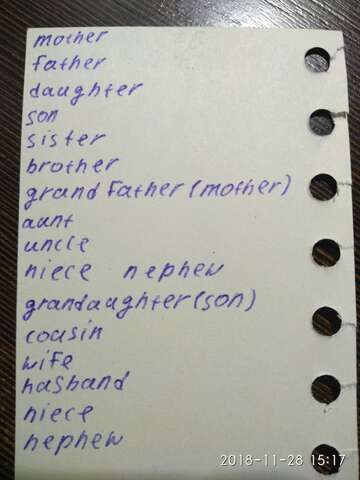 mother
father
daughter
son
sister
brother
grandfather (mother)
aunt
uncle
niece nephew
grandaughter (son)
cousin
wife
hasband
niece
nephew
2018-11-28 15:17